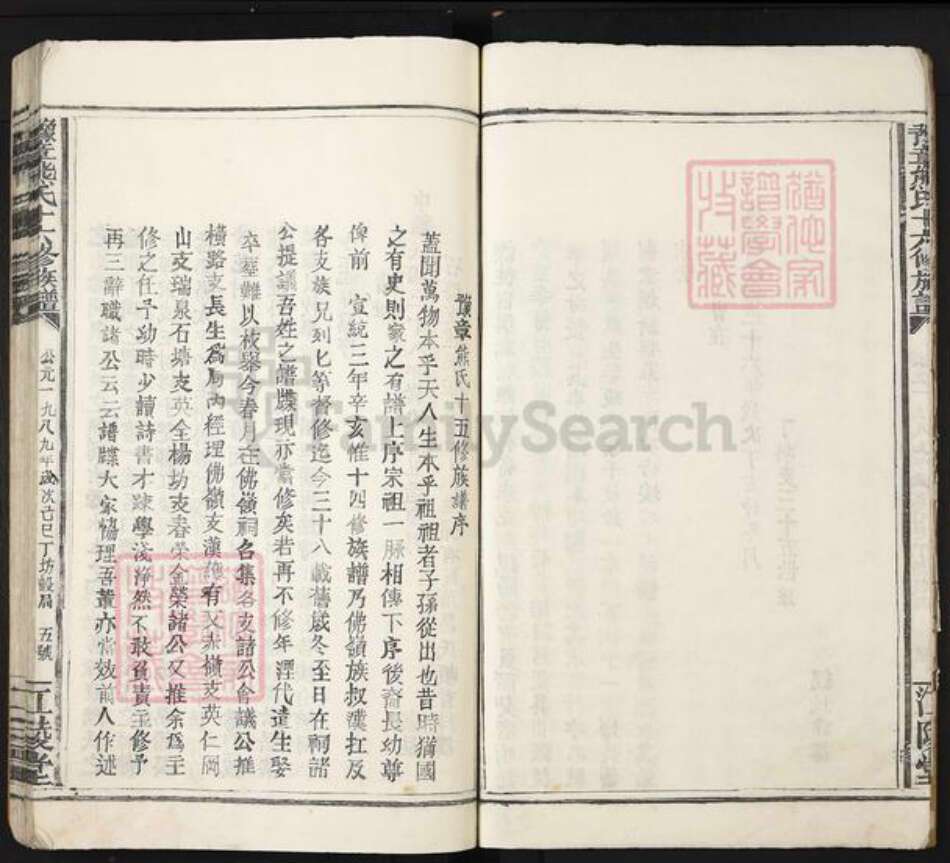 豫章熊氏十六修族譜
江陵堂
豫章熊氏十五修族譜序
蓋聞萬物本乎天人生本乎祖祖者子孫從出也昔時猶國
之有史則家之有譜上序宗祖一脈相傳下序後裔長幼尊
俾前 宣統三年辛亥惟十四修族譜乃佛嶺族叔漢扛及
各支族兄列七等督修迄今三十八載舊歲冬至日在祠諸
公提議吾姓之譜牒現亦當修矣若再不修年湮代遠生娶
卒塟難以枚舉今春月在佛嶺祠召集各支諸公會議公推
橫路支長生為局內經理佛嶺支漢 有 赤嶺支英仁岡
山支瑞泉石塘支英全楊坊支春荣金榮諸公又推余為主
修之任予幼時少讀詩書才踈學淺凈然不敢負責主修予
再三辭職諸公云云譜牒大家恊理吾輩亦當效前人作述
豫章熊氏十六修族譜
公元一九八九年歲次己巳丁坊毅局 五號
江陵堂
譜學會
收藏
FamilySearch